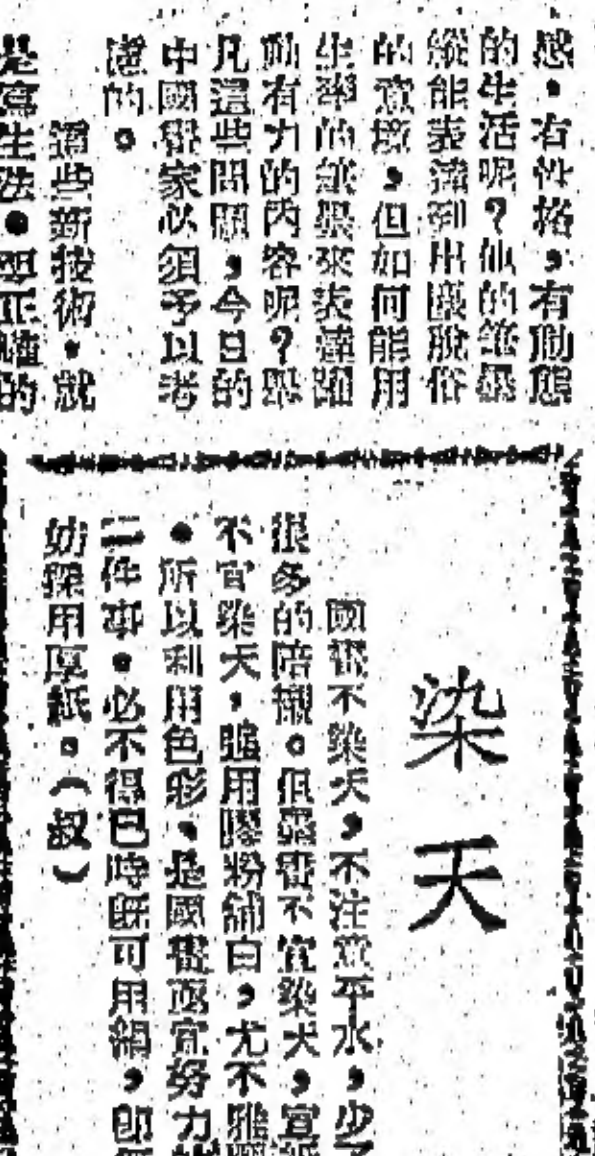 感，有性格，有動態
的生活呢？他的筆墨
縱能表達到出塵脫俗
的意境，但如何能用
生率的紙果來表達
動有力的內容呢？
凡這些問題，今日的
中國畫家必須予以考
慮的。
這些新技術，就
是寫生法。即正確的
染天
國畫不染天，不注意平水，少了
很多的陪襯。但宣畫不宜染天，宣紙
不宜染天，強用膠粉舖白，尤不雅
。所以利用色彩，是國畫宜努力
二件事。必不得已時既可用絹，即
妨採用厚紙。（叔）